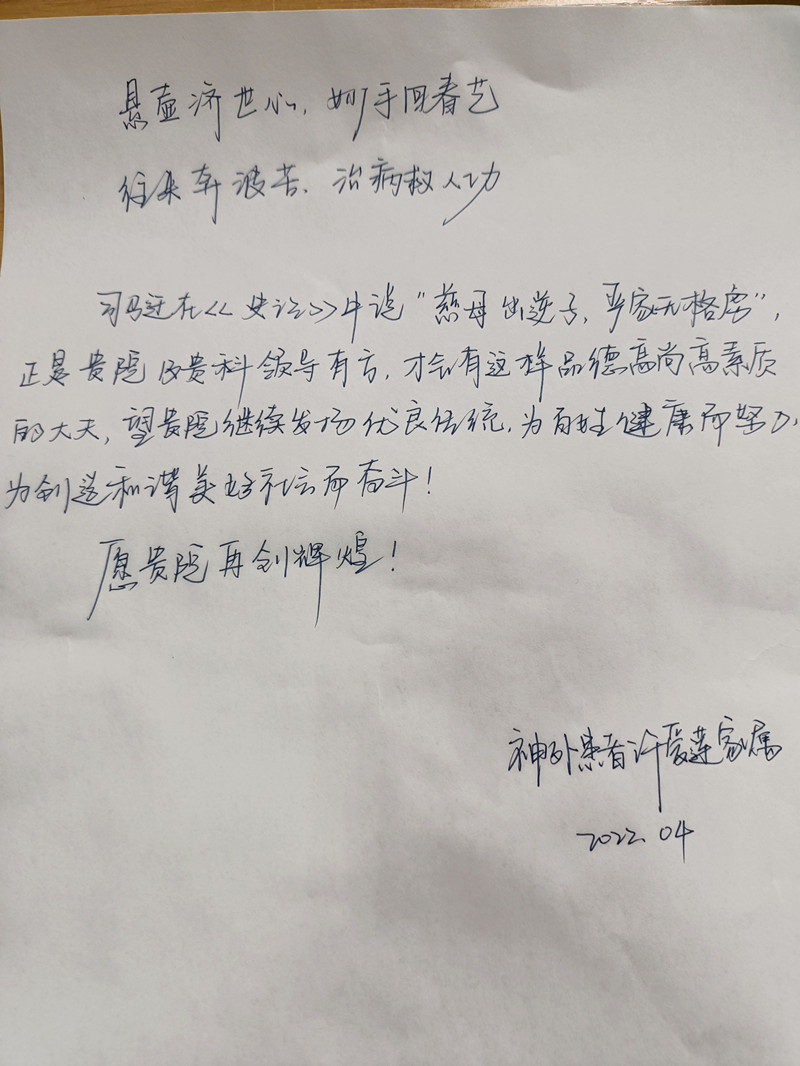 悬壶济世心，妙手回春艺
往来奔波苦、治病救人功
司马迁在<<史记>>中说"慈母出逆子，严家无格虏"，
正是贵院及贵科领导有方，才会有这样品德高尚高素质
的大夫，望贵院继续发扬优良传统，为百姓健康而努力，
为创造和谐美好社会而奋斗！
愿贵院再创辉煌！
神外患者许爱莲家属
2022.04